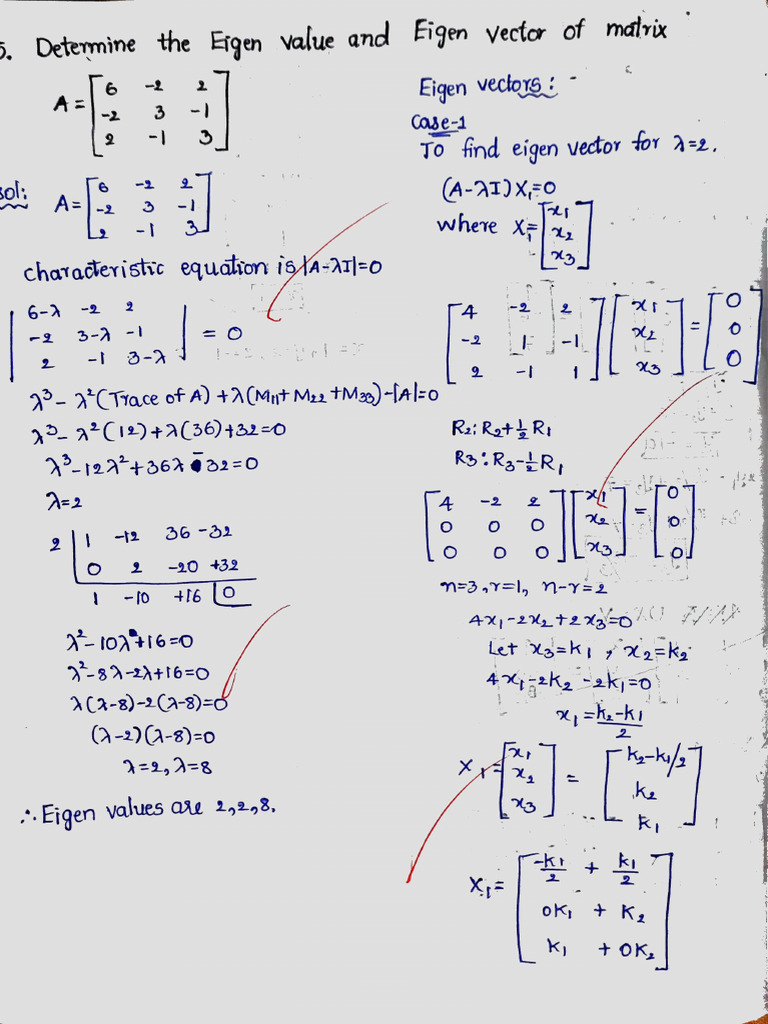 5. Determine the Eigen value and Eigen vector of matrix
A = [6 -2 2
-2 3 -1
2 -1 3]
sol: A = [6 -2 2
-2 3 -1
2 -1 3]
characteristic equation is |A-λI|=0
|6-λ -2 2
-2 3-λ -1
2 -1 3-λ| = 0
λ³ - λ²(Trace of A) + λ(M11+M22+M33) - |A|=0
λ³ - λ²(12) + λ(36) + 32 = 0
λ³ - 12λ² + 36λ - 32 = 0
λ=2
2 | 1 -12 36 -32
0 2 -20 +32
1 -10 +16 |0
λ² - 10λ + 16 = 0
λ² - 8λ - 2λ + 16 = 0
λ(λ-8) - 2(λ-8) = 0
(λ-2)(λ-8) = 0
λ=2, λ=8
∴ Eigen values are 2,2,8.
Eigen vectors: -
Case-1
To find eigen vector for λ=2.
(A-λI)X₁=0
where X₁ = [x1
x2
x3]
[4 -2 2
-2 1 -1
2 -1 1] [x1
x2
x3] = [0
0
0]
R2: R2 + ½ R1
R3: R3 - ½ R1
[4 -2 2
0 0 0
0 0 0] [x1
x2
x3] = [0
0
0]
n=3, r=1, n-r=2
4x1 - 2x2 + 2x3 = 0
Let x3 = k1, x2 = k2
4x1 - 2k2 - 2k1 = 0
x1 = k2-k1/2
X1 = [x1
x2
x3] = [k2-k1/2
k2
k1]
X1 = [-k1/2 + k1/2
0k1 + k2
k1 + 0k2]